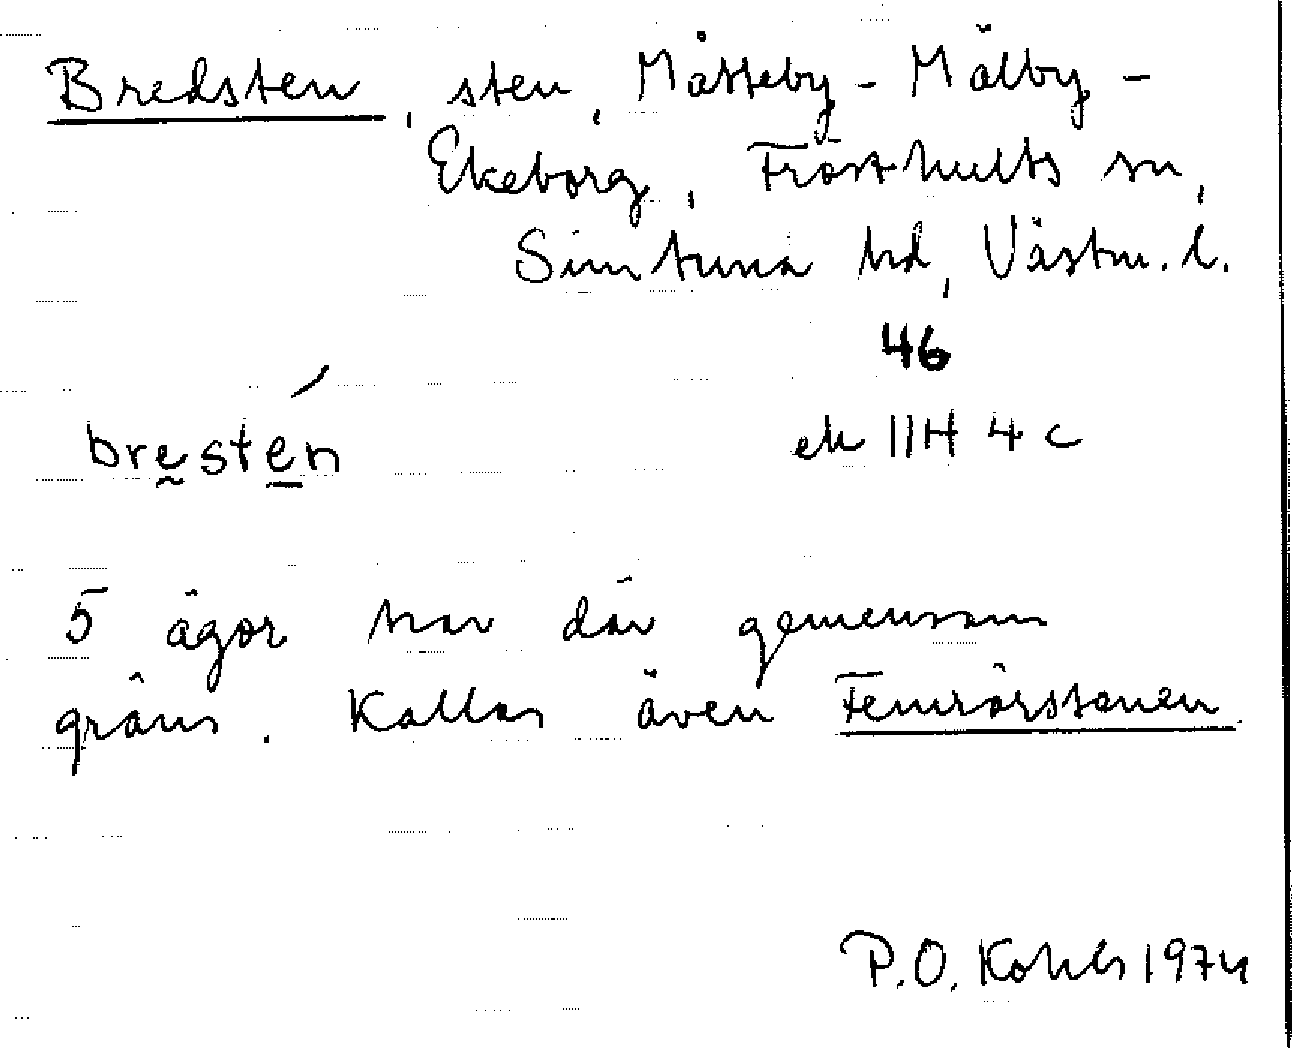 Bredsten, sten, Måsteby - Mälby -
Ekeborg, Frösthults sn,
Simtuna hd, Västm. l.
46
ek 11H 4c
brestén
5 ägor har där gemensam
gräns. Kallas även Femrörstenen.
P.O. Kohls 1974